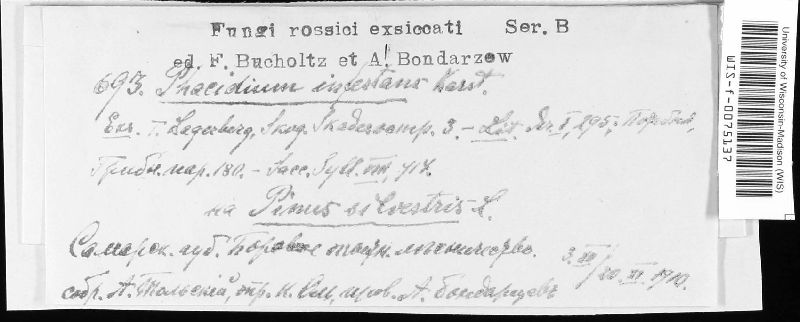 Fungi rossici exsiccati Ser. B
ed. F. Bucholtz et A. Bondarzew
693. Phacidium infestans Karst.
Exs. T. Lagerberg, Skog. Skadesvamp. 3. – Lit. I, 295; 
Грибн. пар. 180. – Sacc. Syll. VIII, 714.
на Pinus silvestris L.
Самарск. губ. Боровое опытн. лесничество.
3.IV/20.VI 1910.
собр. А. Тольскій, опр. и пров. А. Бондарцевъ
University of Wisconsin-Madison (WIS)
WIS-f-0075137